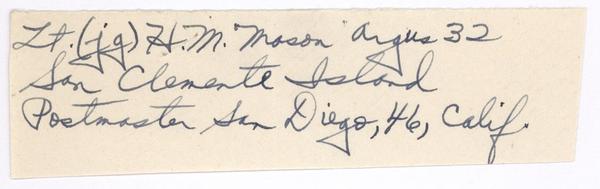 Lt. (jg) H. M. Mason Argus 32
San Clemente Island
Postmaster San Diego, 46, Calif.